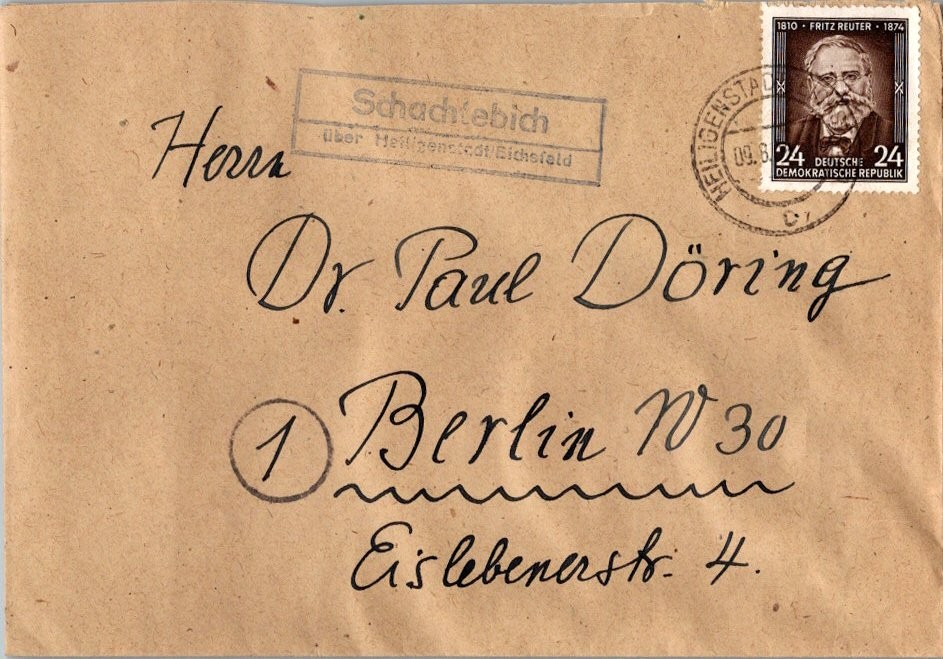 1810 · FRITZ REUTER · 1874
24 DEUTSCHE 24
DEMOKRATISCHE REPUBLIK
HEILIGENSTADT
09.8.
Schachtebich
über Heiligenstadt/Eichsfeld
Herrn
Dr. Paul Döring
1 Berlin W 30
Eislebenerstr. 4.